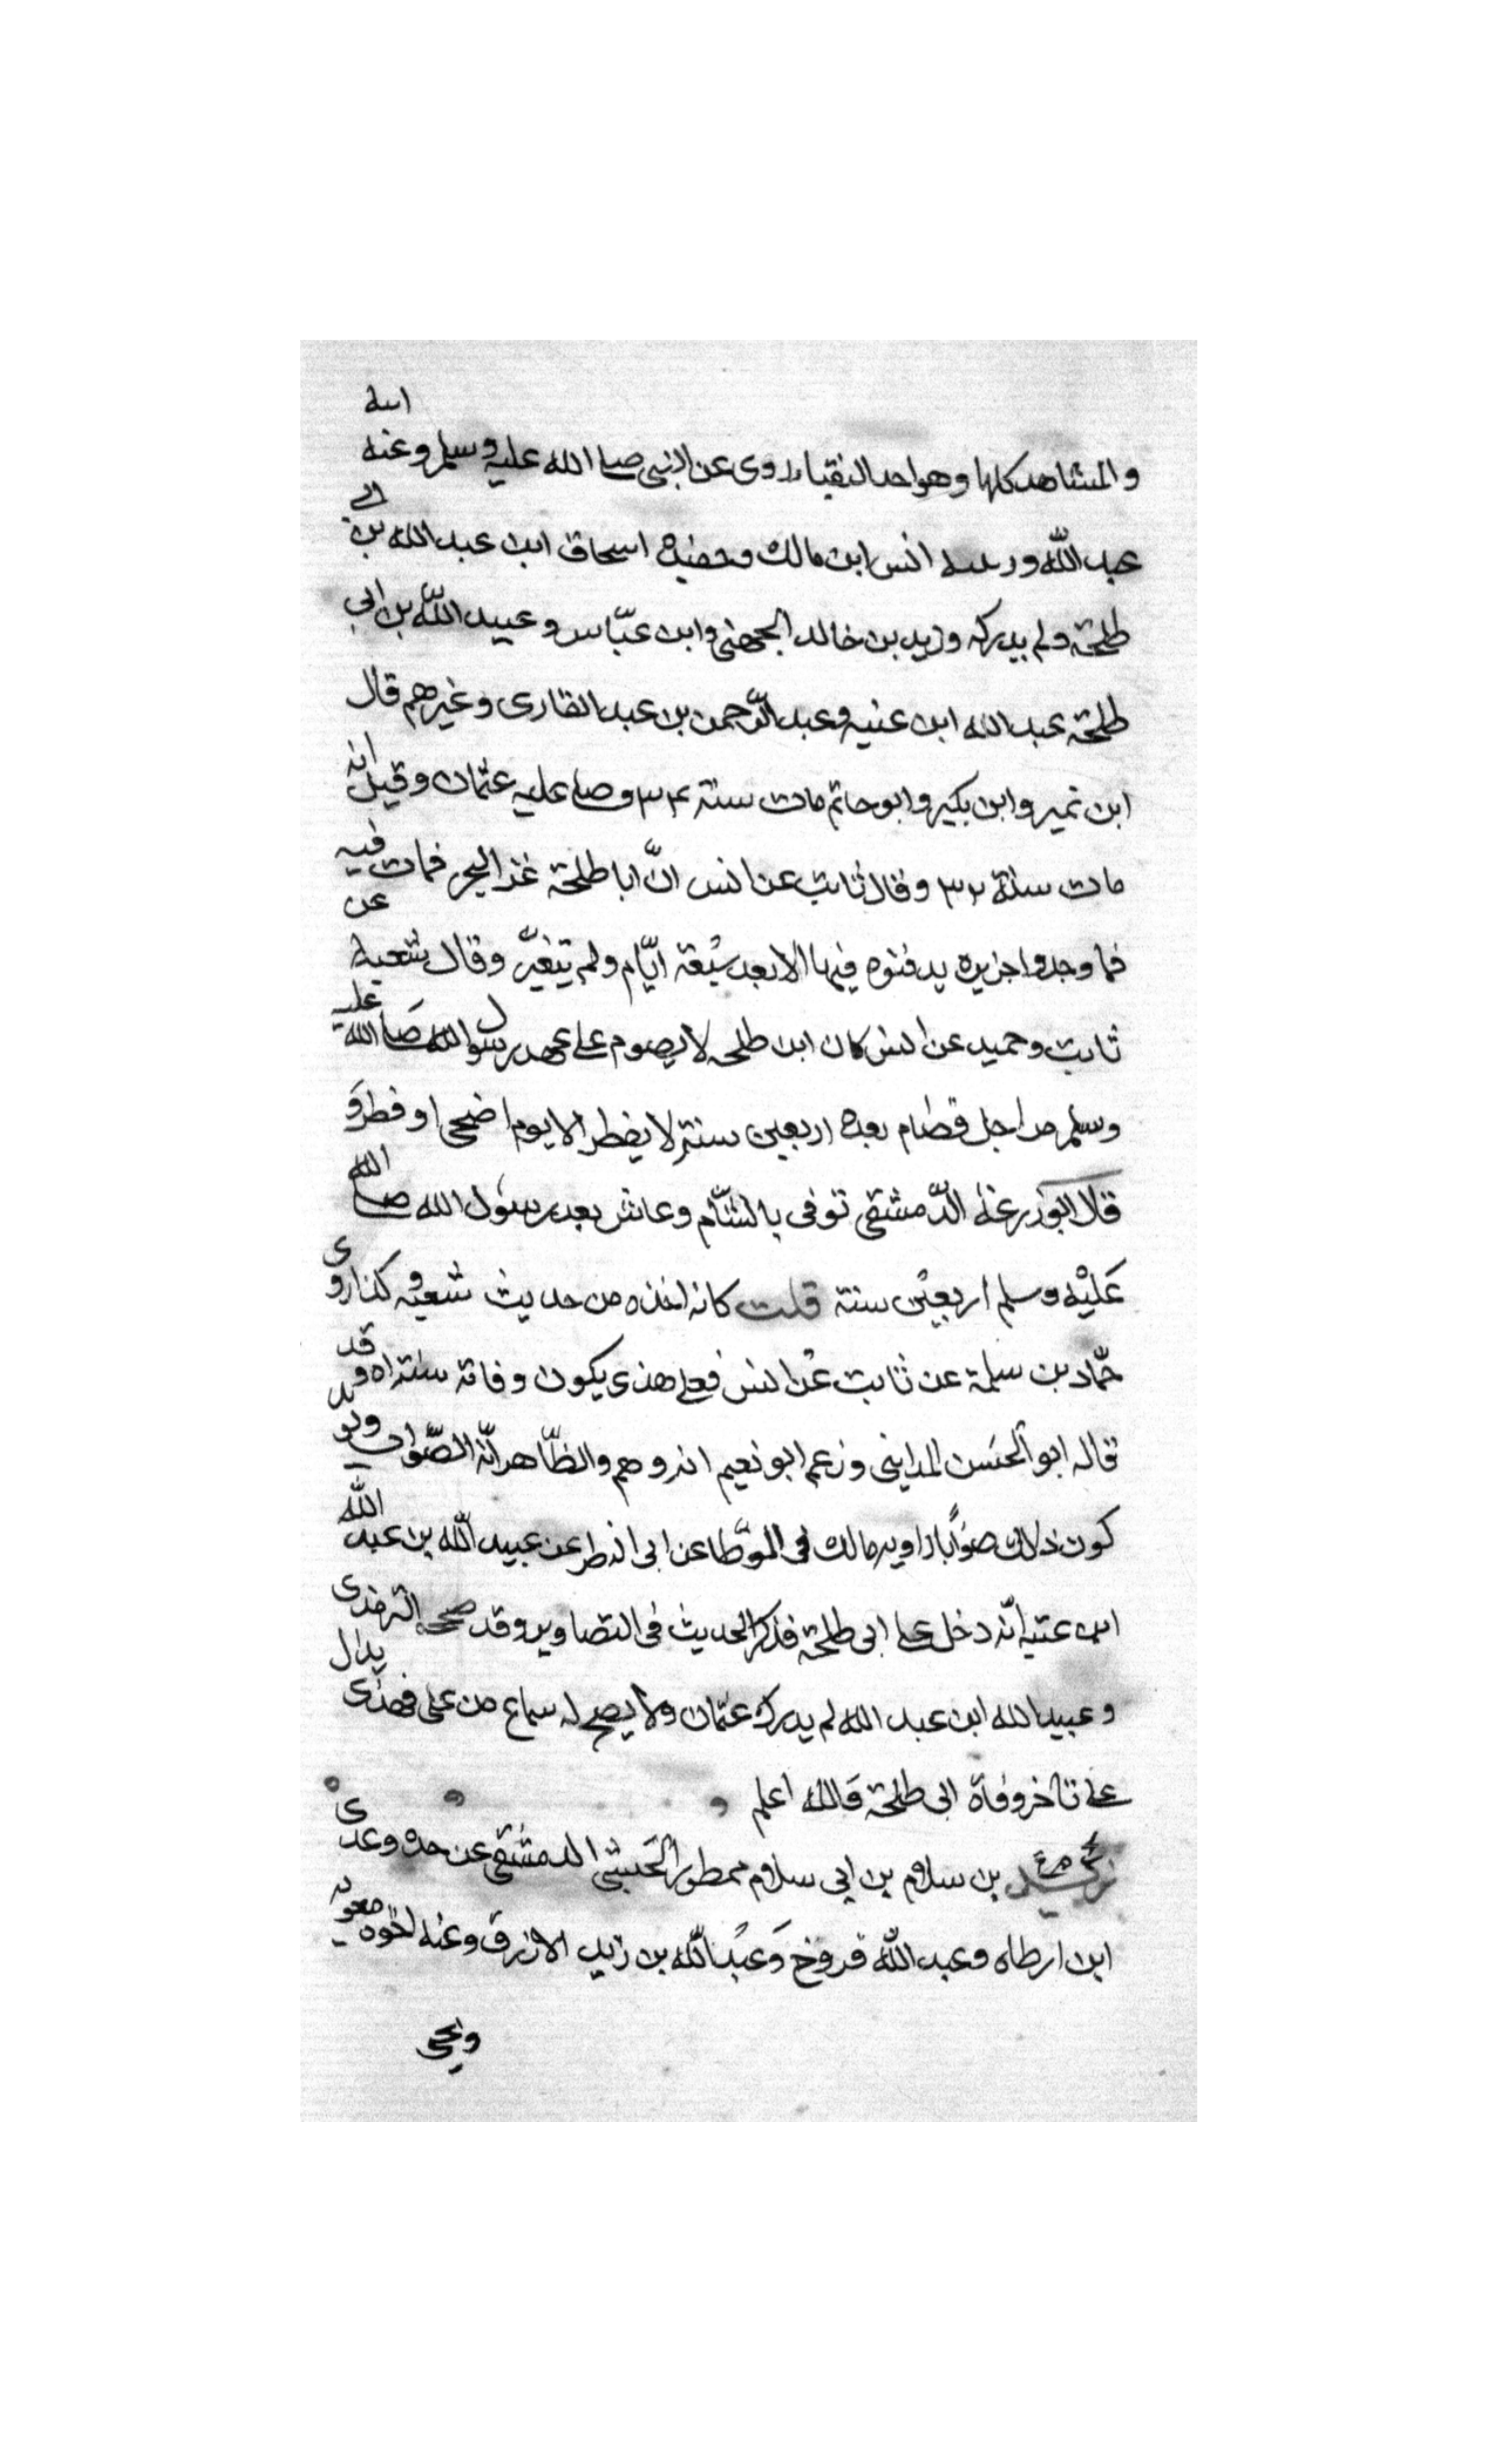 والمشاهد كلها وهو احد النقباء روى عن النبي صلى الله عليه وسلم وعنه ابنه
عبد الله وربيبه انس ابن مالك وحفيده اسحاق ابن عبد الله بن ابي
طلحة ولم يدركه وزيد بن خالد الجهني وابن عباس وعبيد الله بن ابي
طلحة عبد الله ابن عنبه وعبد الرحمن بن عبد القارى وغيرهم قال
ابن نمير وابن بكير وابو حاتم مات سنة ٣٤ وصلى عليه عثمان وقيل انه
مات سنة ٣٢ وقال ثابت عن انس انّ ابا طلحة غزا البحر فمات فيه
فما وجدوا جزيرة يدفنوه فيها الا بعد سبعة ايّام ولم يتغيّر وقال شعبة عن
ثابت وحميد عن انس كان ابن طلحه لا يصوم على عهد رسول الله صلى الله عليه
وسلم من اجل فصام بعده اربعين سنة لا يفطر الا يوم اضحى او فطر و
قال ابوزرعة الدّمشقي توفى بالشّام وعاش بعد رسول الله صلى الله
عَليْه وسلم اربعين سنة قلت كانه اخذه من حديث شعبة وكذا روى
حمّاد بن سلمة عن ثابت عن انس فعلى هذى يكون وفاته سنة ٥١ وقد
قاله ابو الحسن المدايني وزعم ابو نعيم انه وهم والظّاهر انّه الصّواب ويويد
كون ذلك صوابًا راويه مالك فى الموطا عن ابى النظر عن عبيد الله بن عبد الله
ابن عتبه انّه دخل على ابى طلحة فذكر الحديث فى التصاوير وقد صححه الترمذى
وعبيد الله ابن عبد الله لم يدرك عثمان ولا يصح له سماع من على فهذى يدل
على تاخر وفاة ابى طلحة فالله اعلم
زيد بن سلام بن ابى سلام ممطور الحبشي الدمشقى عن جده وعدى
ابن ارطاه وعبد الله فروخ وعبد الله بن زيد الازرق وعنه اخوه معويه
ويحى